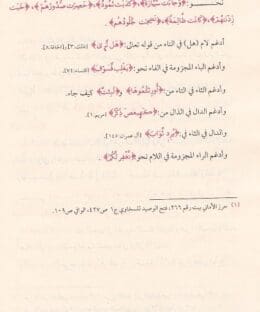 نحـــو: ﴿وَجَاءَتْ سَيَّارَةٌ﴾، ﴿كَذَّبَتْ ثَمُودُ﴾، ﴿حَصِرَتْ صُدُورُهُمْ﴾، ﴿خَبَتْ
زِدْنَاهُمْ﴾، ﴿كَانَتْ ظَالِمَةً﴾، ﴿نَضِجَتْ جُلُودُهُم﴾.
أدغم لام (هل) في التاء من قوله تعالى: ﴿هَلْ تَرَىٰ﴾ [الملك:٣]، [الحاقة:٨].
وأدغم الباء المجزومة في الفاء نحو: ﴿يَغْلِبْ فَسَوْفَ﴾ [النساء:٧٤].
وأدغم الثاء في التاء من: ﴿أُورِثْتُمُوهَا﴾ ﴿لَبِثْتَ﴾ كيف جاء.
وأدغم الدال في الذال من: ﴿كٓهيعٓصٓ ذِكْرُ﴾ [مريم:١].
والدال في الثاء في: ﴿يُرِدْ ثَوَابَ﴾ [آل عمران:١٤٥].
وأدغم الراء المجزومة في اللام نحو: ﴿نَغْفِرْ لَكُمْ﴾.
(١) حرز الأماني بيت رقم ٢٦٦، فتح الوصيد للسخاوي ج١ ص٤٣٧، الوافي ص١٠٩.